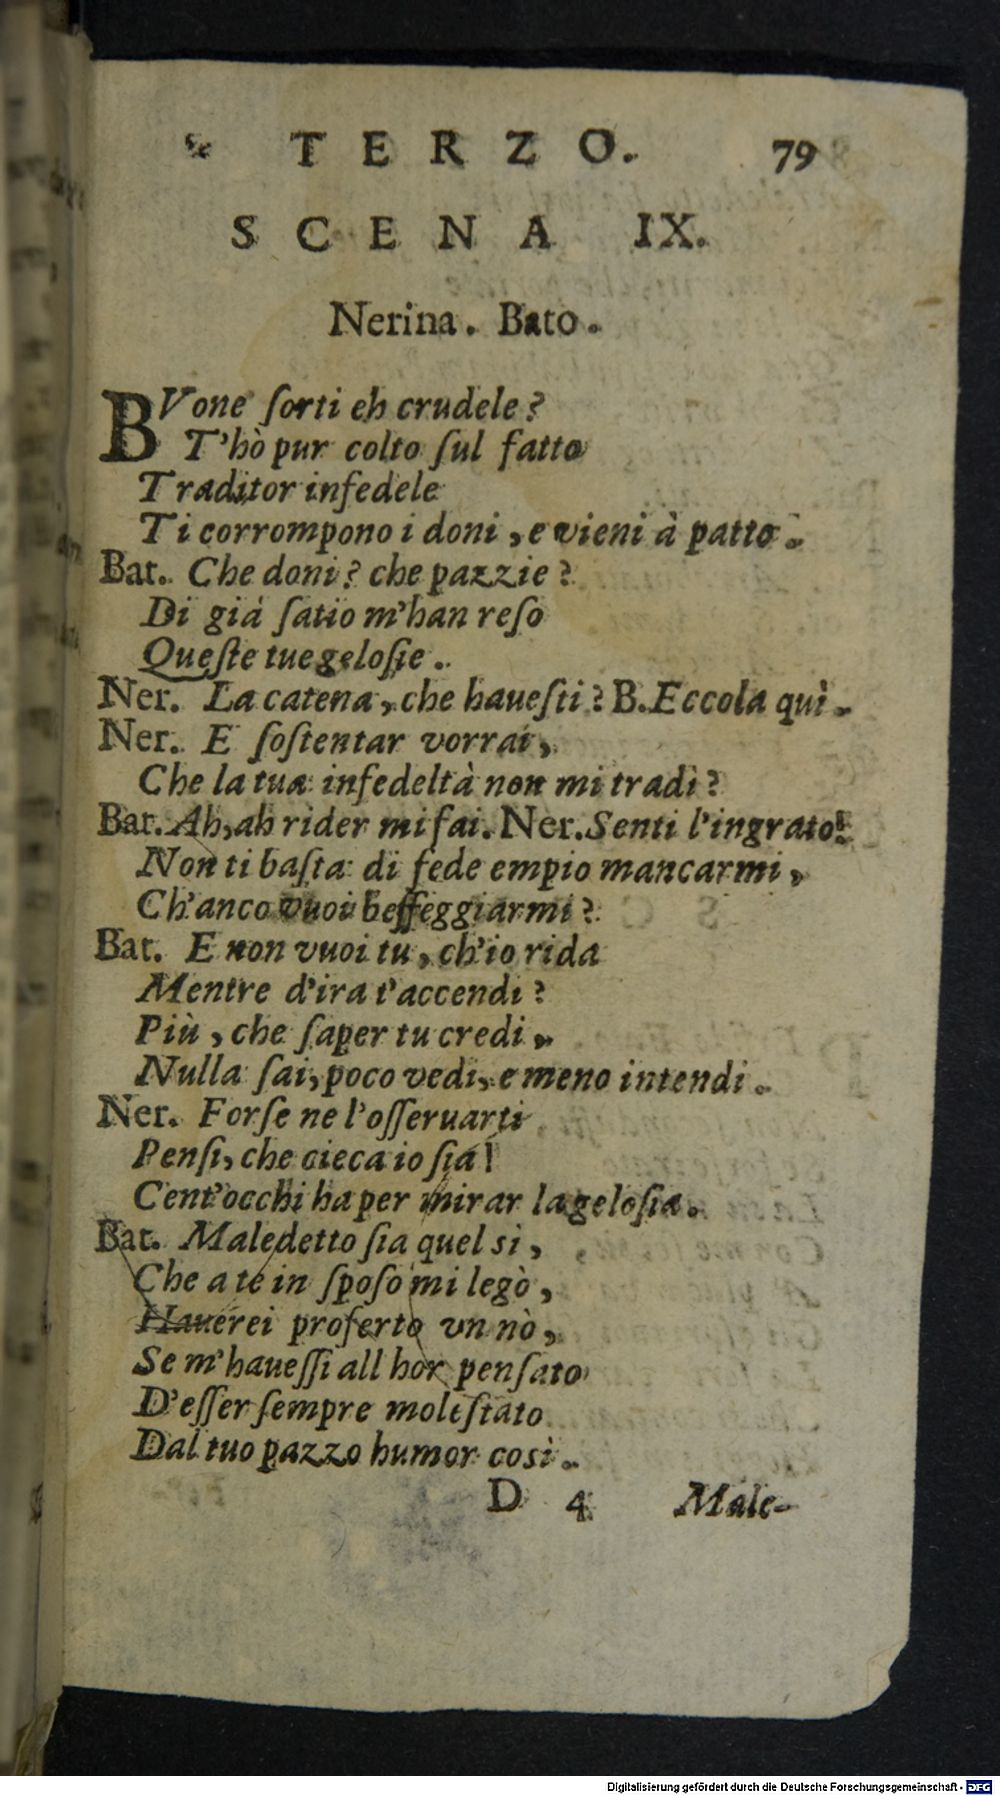 TERZO. 79
SCENA IX.
Nerina. Bato.
BVone ſorti eh crudele?
T'hò pur colto ſul fatto
Traditor infedele
Ti corrompono i doni, e vieni à patto.
Bat. Che doni? che pazzie?
Di già ſatio m'han reſo
Queſte tue geloſie.
Ner. La catena, che haueſti? B. Eccola quì.
Ner. E ſoſtentar vorrai,
Che la tua infedeltà non mi tradì?
Bat. Ah, ah rider mi fai. Ner. Senti l'ingrato!
Non ti baſta di fede empio mancarmi,
Ch'anco vuoi beffeggiarmi?
Bat. E non vuoi tu, ch'io rida
Mentre d'ira t'accendi?
Più, che ſaper tu credi,
Nulla ſai, poco vedi, e meno intendi.
Ner. Forſe ne l'oſſeruarti
Penſi, che cieca io ſia!
Cent'occhi ha per mirar la geloſia.
Bat. Maledetto ſia quel sì,
Che a te in ſpoſo mi legò,
Hauerei proferto vn nò,
Se m'haueſſi all hor penſato
D'eſſer ſempre moleſtato
Dal tuo pazzo humor così.
D 4 Male-
Digitalisierung gefördert durch die Deutsche Forschungsgemeinschaft - DFG